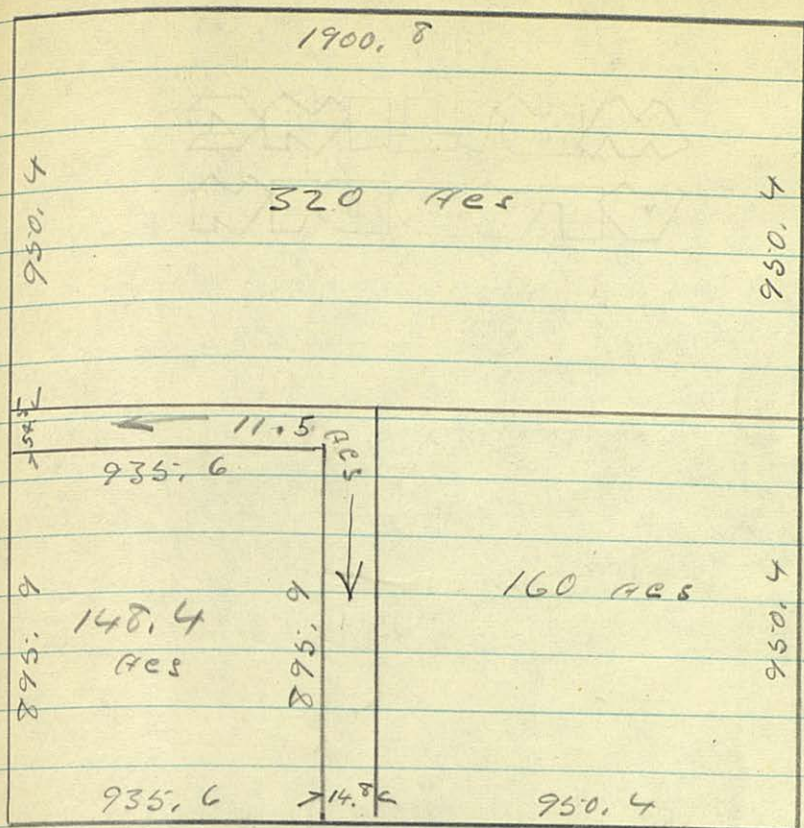 1900.8
950.4
320 Acs
950.4
54.5
11.5 Acs
935.6
895.9
148.4
Acs
895.9
160 Acs
950.4
935.6
14.8
950.4